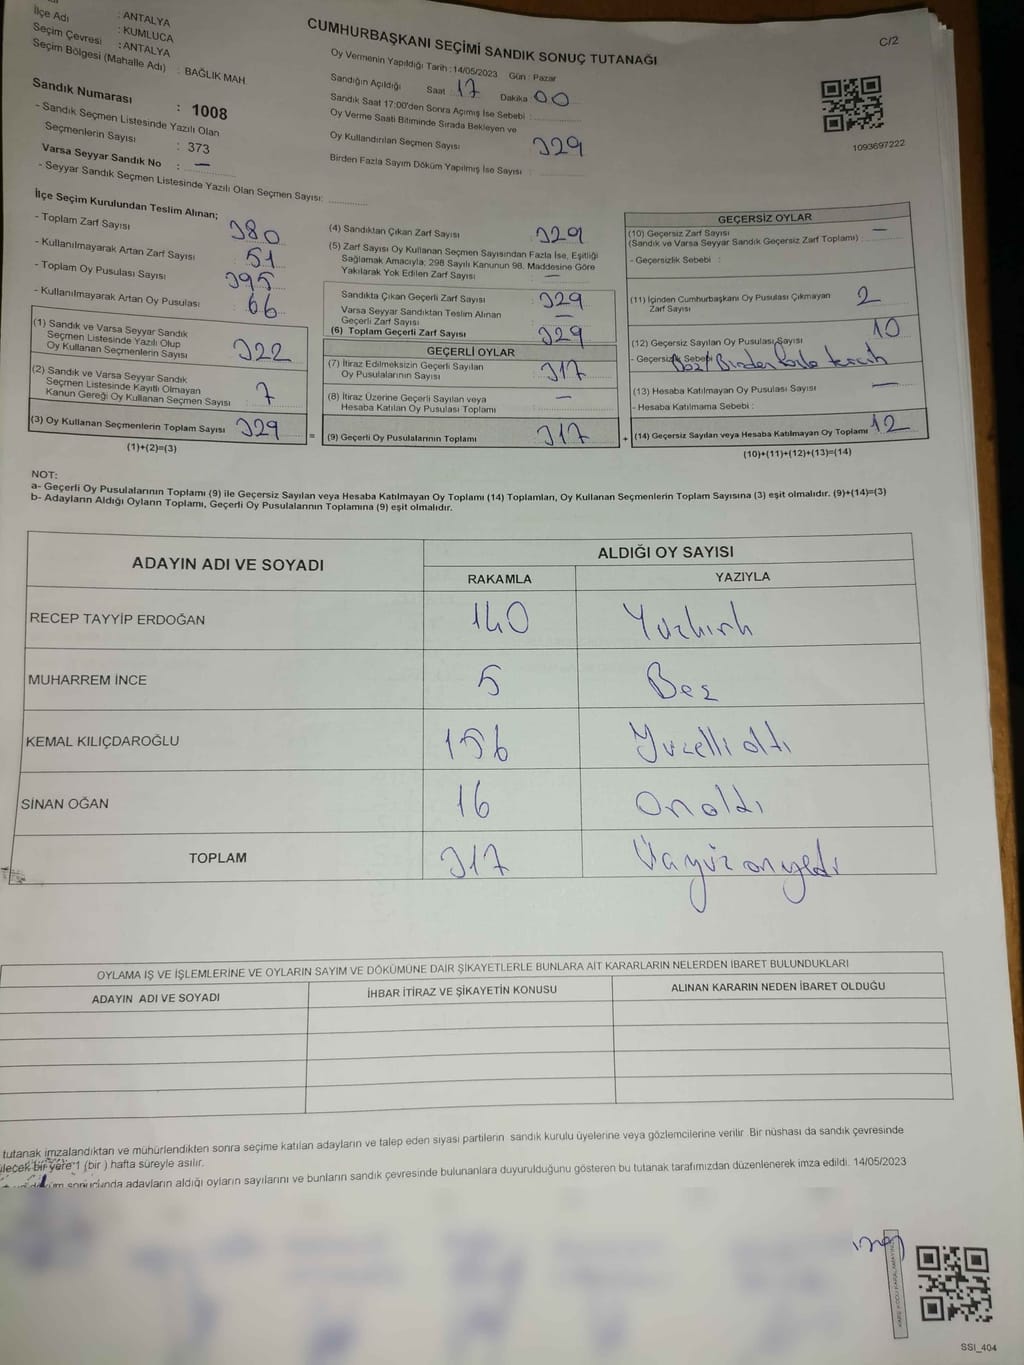 İlçe Adı : ANTALYA
Seçim Çevresi : KUMLUCA
Seçim Bölgesi (Mahalle Adı) : ANTALYA
: BAĞLIK MAH.
Sandık Numarası : 1008
- Sandık Seçmen Listesinde Yazılı Olan
Seçmenlerin Sayısı : 373
Varsa Seyyar Sandık No : —
- Seyyar Sandık Seçmen Listesinde Yazılı Olan Seçmen Sayısı:
CUMHURBAŞKANI SEÇİMİ SANDIK SONUÇ TUTANAĞI
C/2
Oy Vermenin Yapıldığı Tarih : 14/05/2023 Gün : Pazar
Sandığın Açıldığı Saat : 17 Dakika : 00
Sandık Saat 17:00'den Sonra Açımış İse Sebebi :
Oy Verme Saati Bitiminde Sırada Bekleyen ve
Oy Kullandırılan Seçmen Sayısı : 329
Birden Fazla Sayım Döküm Yapılmış İse Sayısı :
1093697222
İlçe Seçim Kurulundan Teslim Alınan;
- Toplam Zarf Sayısı 380
- Kullanılmayarak Artan Zarf Sayısı 51
- Toplam Oy Pusulası Sayısı 395
- Kullanılmayarak Artan Oy Pusulası 66
(1) Sandık ve Varsa Seyyar Sandık
Seçmen Listesinde Yazılı Olup
Oy Kullanan Seçmenlerin Sayısı 322
(2) Sandık ve Varsa Seyyar Sandık
Seçmen Listesinde Kayıtlı Olmayan
Kanun Gereği Oy Kullanan Seçmen Sayısı 7
(3) Oy Kullanan Seçmenlerin Toplam Sayısı 329
(1)+(2)=(3)
(4) Sandıktan Çıkan Zarf Sayısı 329
(5) Zarf Sayısı Oy Kullanan Seçmen Sayısından Fazla İse, Eşitliği
Sağlamak Amacıyla; 298 Sayılı Kanunun 98. Maddesine Göre
Yakılarak Yok Edilen Zarf Sayısı —
Sandıkta Çıkan Geçerli Zarf Sayısı 329
Varsa Seyyar Sandıktan Teslim Alınan
Geçerli Zarf Sayısı —
(6) Toplam Geçerli Zarf Sayısı 329
GEÇERLİ OYLAR
(7) İtiraz Edilmeksizin Geçerli Sayılan
Oy Pusulalarının Sayısı 317
(8) İtiraz Üzerine Geçerli Sayılan veya
Hesaba Katılan Oy Pusulası Toplamı —
= (9) Geçerli Oy Pusulalarının Toplamı 317 +
GEÇERSİZ OYLAR
(10) Geçersiz Zarf Sayısı —
(Sandık ve Varsa Seyyar Sandık Geçersiz Zarf Toplamı) :
- Geçersizlik Sebebi :
(11) İçinden Cumhurbaşkanı Oy Pusulası Çıkmayan
Zarf Sayısı 2
(12) Geçersiz Sayılan Oy Pusulası Sayısı 10
- Geçersizlik Sebebi Boş / Birden Fazla tercih
(13) Hesaba Katılmayan Oy Pusulası Sayısı —
- Hesaba Katılmama Sebebi :
(14) Geçersiz Sayılan veya Hesaba Katılmayan Oy Toplamı 12
(10)+(11)+(12)+(13)=(14)
NOT:
a- Geçerli Oy Pusulalarının Toplamı (9) ile Geçersiz Sayılan veya Hesaba Katılmayan Oy Toplamı (14) Toplamları, Oy Kullanan Seçmenlerin Toplam Sayısına (3) eşit olmalıdır. (9)+(14)=(3)
b- Adayların Aldığı Oyların Toplamı, Geçerli Oy Pusulalarının Toplamına (9) eşit olmalıdır.
ADAYIN ADI VE SOYADI
ALDIĞI OY SAYISI
RAKAMLA YAZIYLA
RECEP TAYYİP ERDOĞAN 140 Yuzkırk
MUHARREM İNCE 5 Beş
KEMAL KILIÇDAROĞLU 156 Yuzelli altı
SİNAN OĞAN 16 Onaltı
TOPLAM 317 Üçyüz onyedi
OYLAMA İŞ VE İŞLEMLERİNE VE OYLARIN SAYIM VE DÖKÜMÜNE DAİR ŞİKAYETLERLE BUNLARA AİT KARARLARIN NELERDEN İBARET BULUNDUKLARI
ADAYIN ADI VE SOYADI İHBAR İTİRAZ VE ŞİKAYETİN KONUSU ALINAN KARARIN NEDEN İBARET OLDUĞU
tutanak imzalandıktan ve mühürlendikten sonra seçime katılan adayların ve talep eden siyasi partilerin sandık kurulu üyelerine veya gözlemcilerine verilir. Bir nüshası da sandık çevresinde
bir yere 1 (bir) hafta süreyle asılır.
sonucunda adayların aldığı oyların sayılarını ve bunların sandık çevresinde bulunanlara duyurulduğunu gösteren bu tutanak tarafımızdan düzenlenerek imza edildi. 14/05/2023
SSI_404